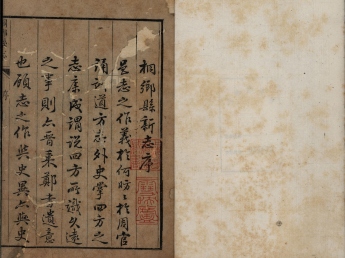 桐鄉縣新志序
邑志之作義於何昉〻於周官
誦訓道方志外史掌四方之
志康成謂說四方所識久遠
之事則六晉乘鄭書遺意
也顧志之作與史異六與史